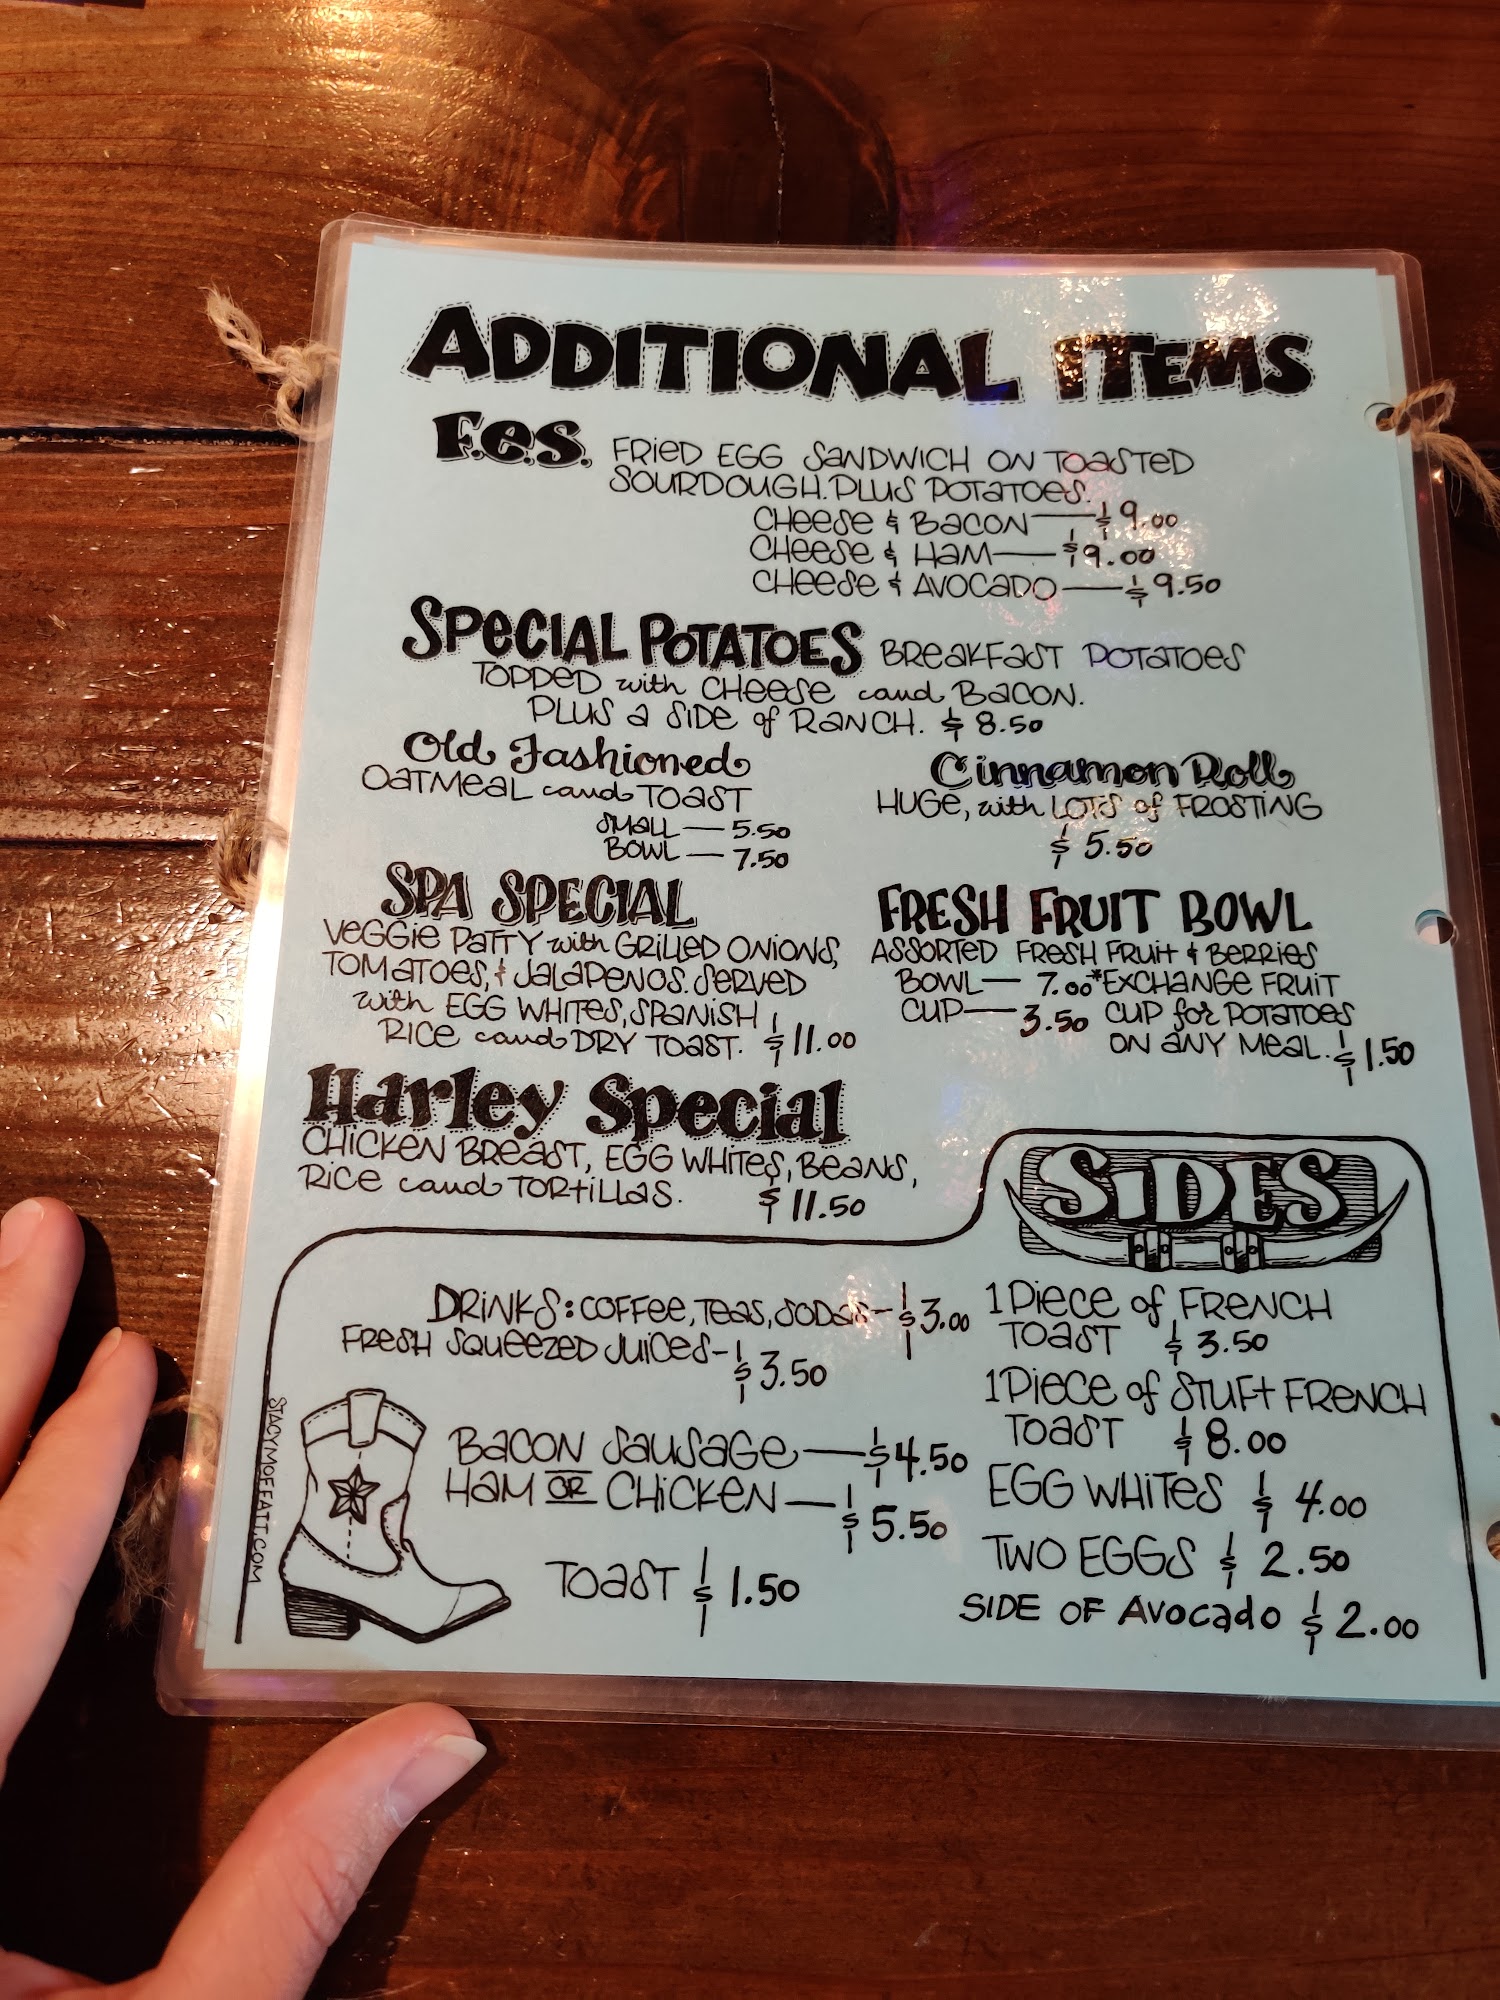 ADDITIONAL ITEMS
F.e.S. FRIED EGG SANDWICH ON TOASTED
SOURDOUGH. PLUS POTATOES.
CHEESE & BACON — $9.00
CHEESE & HAM — $9.00
CHEESE & AVOCADO — $9.50
SPECIAL POTATOES BREAKFAST POTATOES
TOPPED with CHEESE and BACON.
PLUS A SIDE of RANCH. $8.50
Old Fashioned
OATMEAL and TOAST
SMALL — 5.50
BOWL — 7.50
Cinnamon Roll
HUGE, with LOTS of FROSTING
$5.50
SPA SPECIAL
VEGGIE PATTY with GRILLED ONIONS,
TOMATOES, & JALAPENOS. SERVED
with EGG WHITES, SPANISH
RICE and DRY TOAST. $11.00
FRESH FRUIT BOWL
ASSORTED FRESH FRUIT & BERRIES
BOWL — 7.00 *EXCHANGE FRUIT
CUP — 3.50 CUP for POTATOES
ON ANY MEAL. $1.50
Harley Special
CHICKEN BREAST, EGG WHITES, BEANS,
RICE and TORTILLAS. $11.50
SIDES
DRINKS: COFFEE, TEAS, SODAS - $3.00
FRESH SQUEEZED JUICES - $3.50
BACON SAUSAGE — $4.50
HAM OR CHICKEN — $5.50
TOAST $1.50
1 PIECE of FRENCH
TOAST $3.50
1 PIECE of STUFT FRENCH
TOAST $8.00
EGG WHITES $4.00
TWO EGGS $2.50
SIDE OF AVOCADO $2.00
STACYMOFFATT.COM